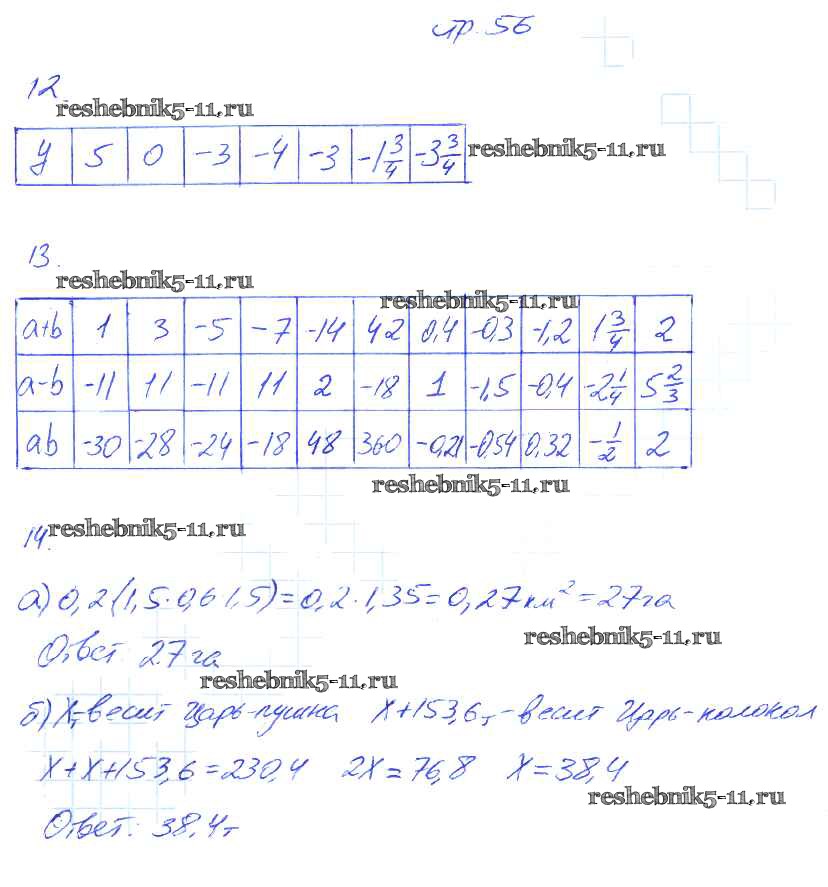 стр. 56
12
reshebnik5-11.ru
y 5 0 -3 -4 -3 -1 3/4 -3 3/4
reshebnik5-11.ru
13.
reshebnik5-11.ru
reshebnik5-11.ru
a+b 1 3 -5 -7 -14 42 0,4 -0,3 -1,2 1 3/4 2
a-b -11 11 -11 11 2 -18 1 -1,5 -0,4 -2 1/4 5 2/3
ab -30 -28 -24 -18 48 360 -0,21 -0,54 0,32 -1/2 2
reshebnik5-11.ru
14.
reshebnik5-11.ru
а) 0,2(1,5·0,6 1,5)=0,2·1,35=0,27км²=27га
reshebnik5-11.ru
Ответ: 27га
reshebnik5-11.ru
б) X т-весит Царь-пушка X+153,6 т-весит Царь-колокол
X+X+153,6=230,4 2X=76,8 X=38,4
reshebnik5-11.ru
Ответ: 38,4т